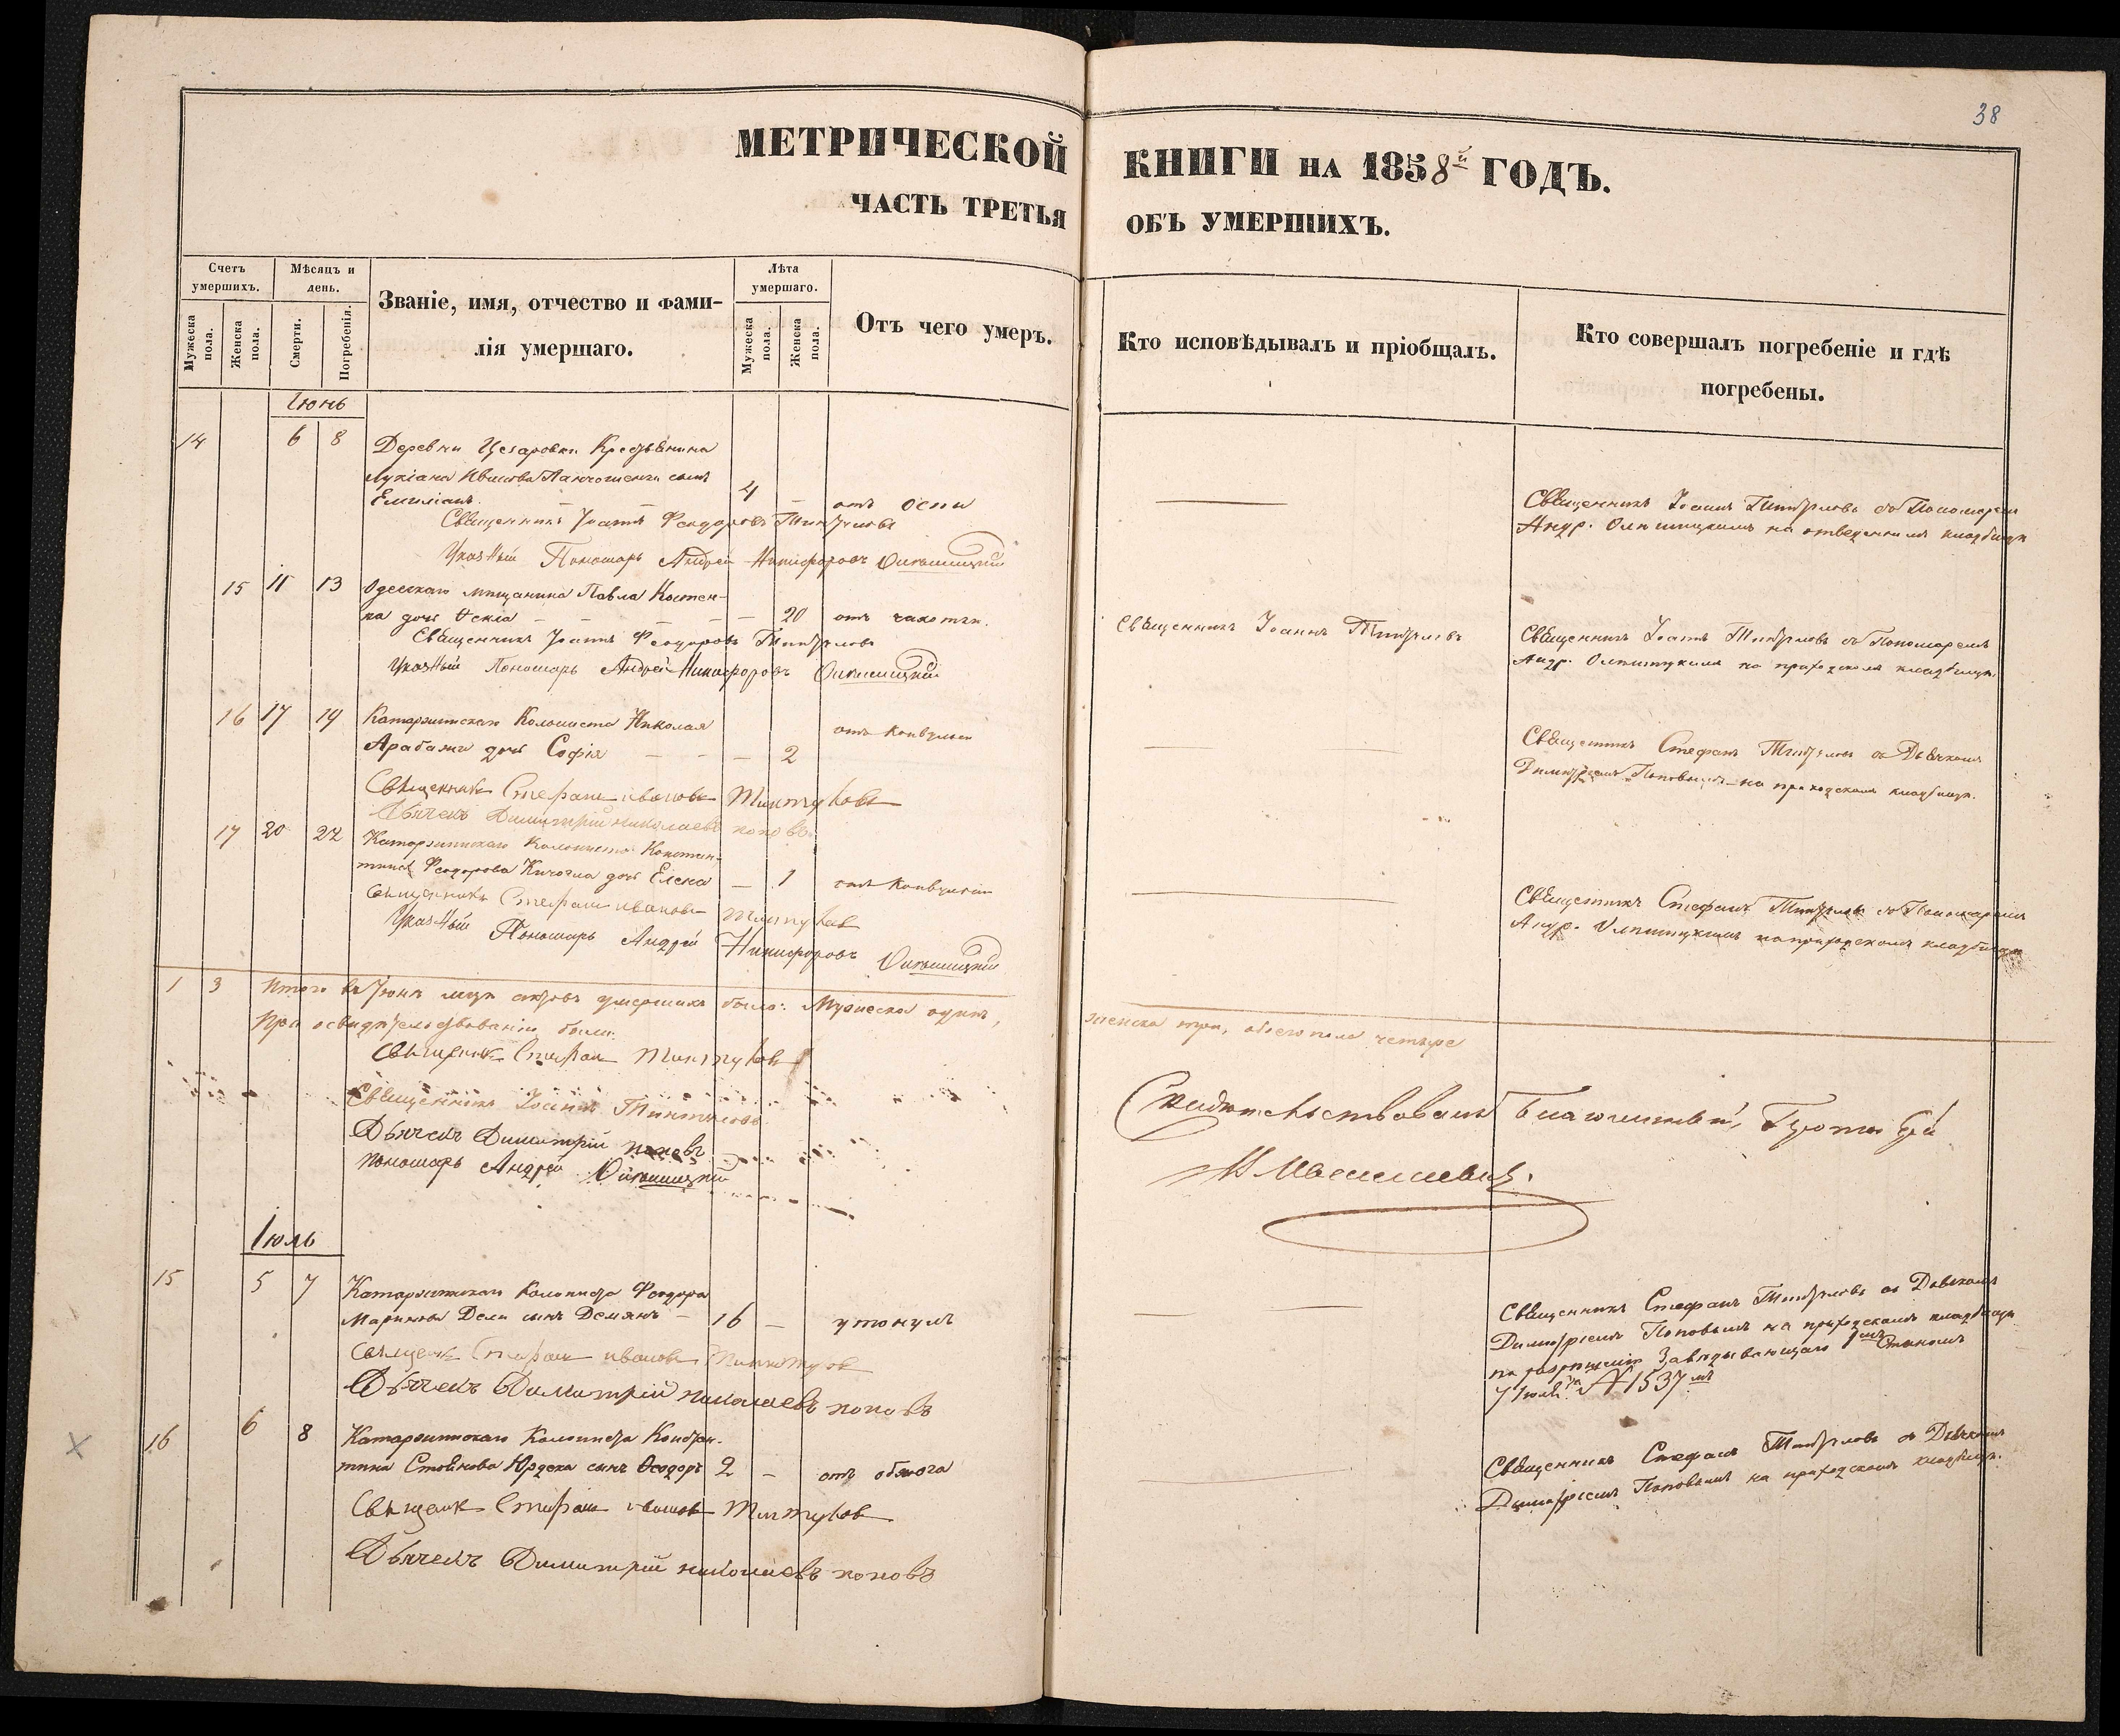 38
МЕТРИЧЕСКОЙ КНИГИ НА 1858й ГОДЪ.
ЧАСТЬ ТРЕТЬЯ ОБЪ УМЕРШИХЪ.
Счетъ умершихъ.
Мужеска пола.
Женска пола.
Мѣсяцъ и день.
Смерти.
Погребенія.
Званіе, имя, отчество и фами-
лія умершаго.
Лѣта умершаго.
Мужеска пола.
Женска пола.
Отъ чего умеръ.
Кто исповѣдывалъ и пріобщалъ.
Кто совершалъ погребеніе и гдѣ
погребены.
Іюнь
14 6 8 Деревни Цезаровки Крестьянина
Лукіана Иванова сынъ
Емиліанъ. 4 – отъ оспы
Священникъ Іоаннъ Феодоровъ
Указный Пономарь Андрей Никифоровъ
Священникъ Іоаннъ съ Пономаремъ
Андр. на отведенномъ кладбищѣ
15 11 13 Одесскаго мѣщанина Павла Костен-
ка дочь Ѳекла – – – – 20 отъ чахотки.
Священникъ Іоаннъ Феодоровъ
Указный Пономарь Андрей Никифоровъ
Священникъ Іоаннъ
Священникъ Іоаннъ съ Пономаремъ
Андр. на приходскомъ кладбищѣ.
16 17 19 Катаржинскаго Колониста Николая
Арабаджи дочь Софія – – – 2 отъ конвульсіи
Священникъ Стефанъ Ивановъ
Дьячекъ Димитрій Николаевъ Поповъ
Священникъ Стефанъ съ Дьячкомъ
Димитріемъ Поповымъ на приходскомъ кладбищѣ.
17 20 22 Катаржинскаго Колониста Констан-
тина Феодорова дочь Елена – 1 отъ конвульсіи
Священникъ Стефанъ Ивановъ
Указный Пономарь Андрей Никифоровъ
Священникъ Стефанъ съ Пономаремъ
Андр. на приходскомъ кладбищѣ
1 3 Итого въ Іюнѣ умершихъ было: Мужеска одинъ,
женска три, обоего пола четыре
При освидѣтельствованіи были:
Священникъ Стефанъ
Священникъ Іоаннъ
Дьячекъ Димитрій Поповъ
Пономарь Андрей
Свидѣтельствовалъ Благочинный, Протоіерей
Іюль
15 5 7 Катаржинскаго Колониста Феодора
Маринова Дели сынъ Демянъ – 16 – утонулъ
Священникъ Стефанъ Ивановъ
Дьячекъ Димитрій Николаевъ Поповъ
Священникъ Стефанъ съ Дьячкомъ
Димитріемъ Поповымъ на приходскомъ кладбищѣ
по разрѣшенію Завѣдывающаго 1мъ Станомъ
7 Іюля за № 1537мъ
16 6 8 Катаржинскаго Колониста Констан-
тина Стоянова сынъ Ѳеодоръ 2 – отъ обжога
Священникъ Стефанъ Ивановъ
Дьячекъ Димитрій Николаевъ Поповъ
Священникъ Стефанъ съ Дьячкомъ
Димитріемъ Поповымъ на приходскомъ кладбищѣ.